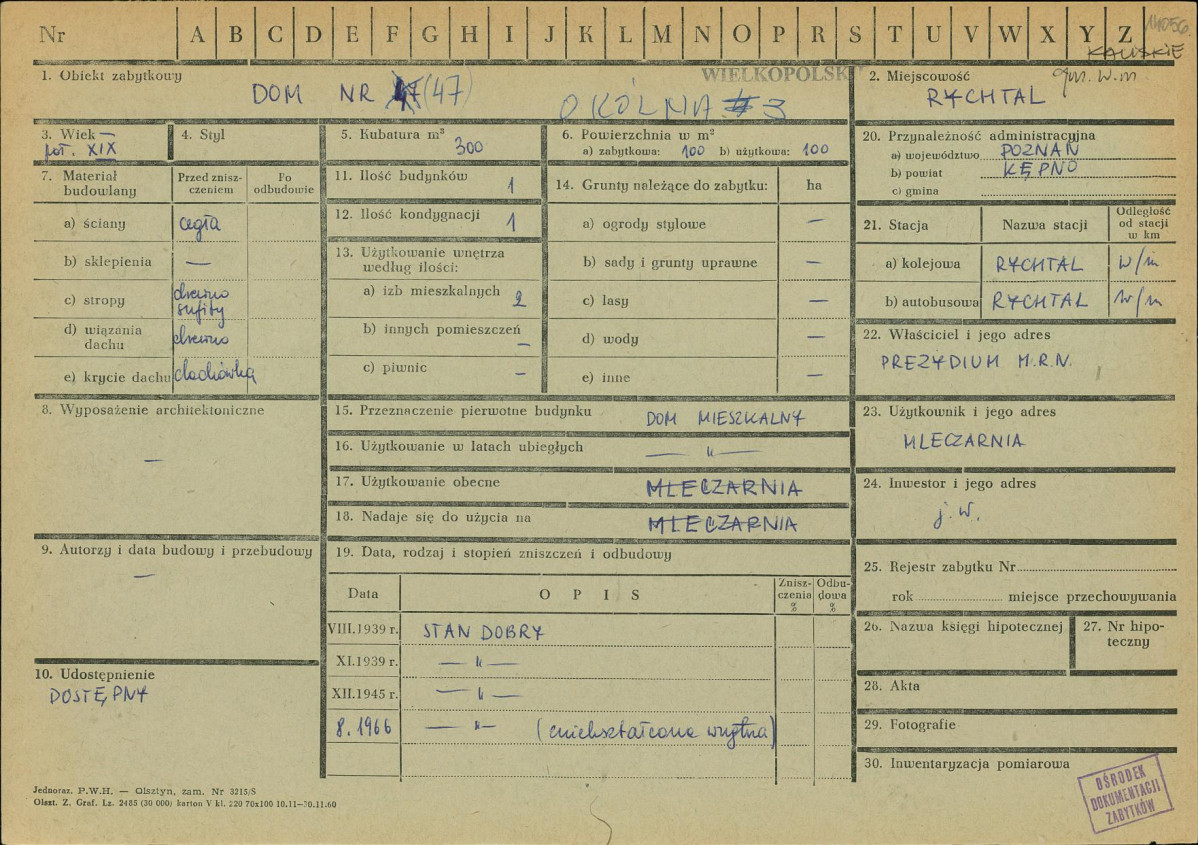 Nr A B C D E F G H I J K L M N O P R S T U V W X Y Z
KALISKIE
WIELKOPOLSK
1. Obiekt zabytkowy
DOM NR 47 (47)
OKÓLNA 3
2. Miejscowość gm. w.m
RYCHTAL
3. Wiek —
poł. XIX
4. Styl
5. Kubatura m³
300
6. Powierzchnia w m²
a) zabytkowa: 100 b) użytkowa: 100
20. Przynależność administracyjna
a) województwo POZNAŃ
b) powiat KĘPNO
c) gmina
7. Materiał budowlany
Przed znisz-
czeniem
Po
odbudowie
a) ściany cegła
b) sklepienia —
c) stropy drewno
sufity
d) wiązania
dachu drewno
e) krycie dachu dachówka
11. Ilość budynków 1
12. Ilość kondygnacji 1
13. Użytkowanie wnętrza
według ilości:
a) izb mieszkalnych 2
b) innych pomieszczeń —
c) piwnic —
14. Grunty należące do zabytku: ha
a) ogrody stylowe —
b) sady i grunty uprawne —
c) lasy —
d) wody —
e) inne —
21. Stacja Nazwa stacji
Odległość
od stacji
w km
a) kolejowa RYCHTAL w/m
b) autobusowa RYCHTAL w/m
22. Właściciel i jego adres
PREZYDIUM M.R.N.
8. Wyposażenie architektoniczne
—
15. Przeznaczenie pierwotne budynku DOM MIESZKALNY
16. Użytkowanie w latach ubiegłych — " —
17. Użytkowanie obecne MLECZARNIA
18. Nadaje się do użycia na MLECZARNIA
23. Użytkownik i jego adres
MLECZARNIA
24. Inwestor i jego adres
j.w.
9. Autorzy i data budowy i przebudowy
—
19. Data, rodzaj i stopień zniszczeń i odbudowy
Data OPIS
Znisz-
czenia
%
Odbu-
dowa
%
VIII.1939 r. STAN DOBRY
XI.1939 r. — " —
XII.1945 r. — " —
8.1966 — " — (zniekształcone wnętrza)
25. Rejestr zabytku Nr
rok miejsce przechowywania
26. Nazwa księgi hipotecznej
27. Nr hipo-
teczny
10. Udostępnienie
DOSTĘPNY
28. Akta
29. Fotografie
30. Inwentaryzacja pomiarowa
OŚRODEK
DOKUMENTACJI
ZABYTKÓW
Jednoraz. P.W.H. — Olsztyn, zam. Nr 3215/S
Olszt. Z. Graf. Lz. 2485 (30 000) karton V kl. 220 70x100 10.11—30.11.60